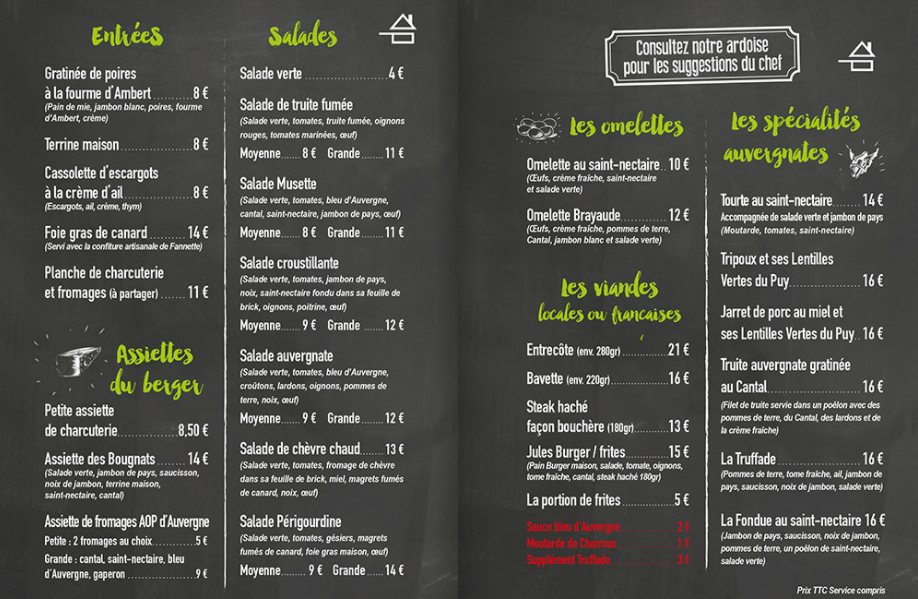 Entrées
Gratinée de poires
à la fourme d'Ambert..........8 €
(Pain de mie, jambon blanc, poires, fourme
d'Ambert, crème)
Terrine maison..........8 €
Cassolette d'escargots
à la crème d'ail..........8 €
(Escargots, ail, crème, thym)
Foie gras de canard..........14 €
(Servi avec la confiture artisanale de Fannette)
Planche de charcuterie
et fromages (à partager).......11 €
Assiettes
du berger
Petite assiette
de charcuterie..........8,50 €
Assiette des Bougnats........14 €
(Salade verte, jambon de pays, saucisson,
noix de jambon, terrine maison,
saint-nectaire, cantal)
Assiette de fromages AOP d'Auvergne
Petite : 2 fromages au choix..........5 €
Grande : cantal, saint-nectaire, bleu
d'Auvergne, gaperon..........9 €
Salades
Salade verte..........4 €
Salade de truite fumée
(Salade verte, tomates, truite fumée, oignons
rouges, tomates marinées, œuf)
Moyenne......8 € Grande......11 €
Salade Musette
(Salade verte, tomates, bleu d'Auvergne,
cantal, saint-nectaire, jambon de pays, œuf)
Moyenne......8 € Grande......11 €
Salade croustillante
(Salade verte, tomates, jambon de pays,
noix, saint-nectaire fondu dans sa feuille de
brick, oignons, poitrine, œuf)
Moyenne......9 € Grande......12 €
Salade auvergnate
(Salade verte, tomates, bleu d'Auvergne,
croûtons, lardons, oignons, pommes de
terre, noix, œuf)
Moyenne......9 € Grande......12 €
Salade de chèvre chaud......13 €
(Salade verte, tomates, fromage de chèvre
dans sa feuille de brick, miel, magrets fumés
de canard, noix, œuf)
Salade Périgourdine
(Salade verte, tomates, gésiers, magrets
fumés de canard, foie gras maison, œuf)
Moyenne......9 € Grande......14 €
Consultez notre ardoise
pour les suggestions du chef
Les omelettes
Omelette au saint-nectaire..10 €
(Œufs, crème fraîche, saint-nectaire
et salade verte)
Omelette Brayaude..........12 €
(Œufs, crème fraîche, pommes de terre,
Cantal, jambon blanc et salade verte)
Les viandes
locales ou francaises
Entrecôte (env. 280gr)..........21 €
Bavette (env. 220gr)..........16 €
Steak haché
façon bouchère (180gr)........13 €
Jules Burger / frites..........15 €
(Pain Burger maison, salade, tomate, oignons,
tome fraîche, cantal, steak haché 180gr)
La portion de frites..........5 €
Sauce bleu d'Auvergne..........2 €
Moutarde de Charroux..........1 €
Supplément Truffade..........3 €
Les spécialités
auvergnates
Tourte au saint-nectaire.......14 €
Accompagnée de salade verte et jambon de pays
(Moutarde, tomates, saint-nectaire)
Tripoux et ses Lentilles
Vertes du Puy..........16 €
Jarret de porc au miel et
ses Lentilles Vertes du Puy..16 €
Truite auvergnate gratinée
au Cantal..........16 €
(Filet de truite servie dans un poêlon avec des
pommes de terre, du Cantal, des lardons et de
la crème fraîche)
La Truffade..........16 €
(Pommes de terre, tome fraîche, ail, jambon de
pays, saucisson, noix de jambon, salade verte)
La Fondue au saint-nectaire 16 €
(Jambon de pays, saucisson, noix de jambon,
pommes de terre, un poêlon de saint-nectaire,
salade verte)
Prix TTC Service compris